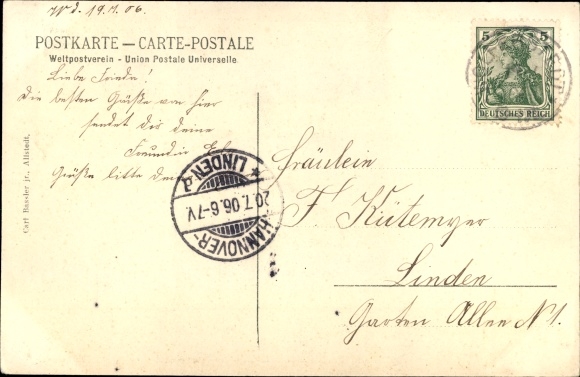 19.7.06.
POSTKARTE — CARTE-POSTALE
Weltpostverein - Union Postale Universelle
Liebe Frieda!
Die besten Grüße von hier
sendet dir deine
Freundin
Grüße bitte
Carl Bansler jr., Allstedt.
5 5
DEUTSCHES REICH
HANNOVER-
20.7.06.6-7V.
* LINDEN 2
Fräulein
F. Kütemeyer
Linden
Garten Allee N 1.